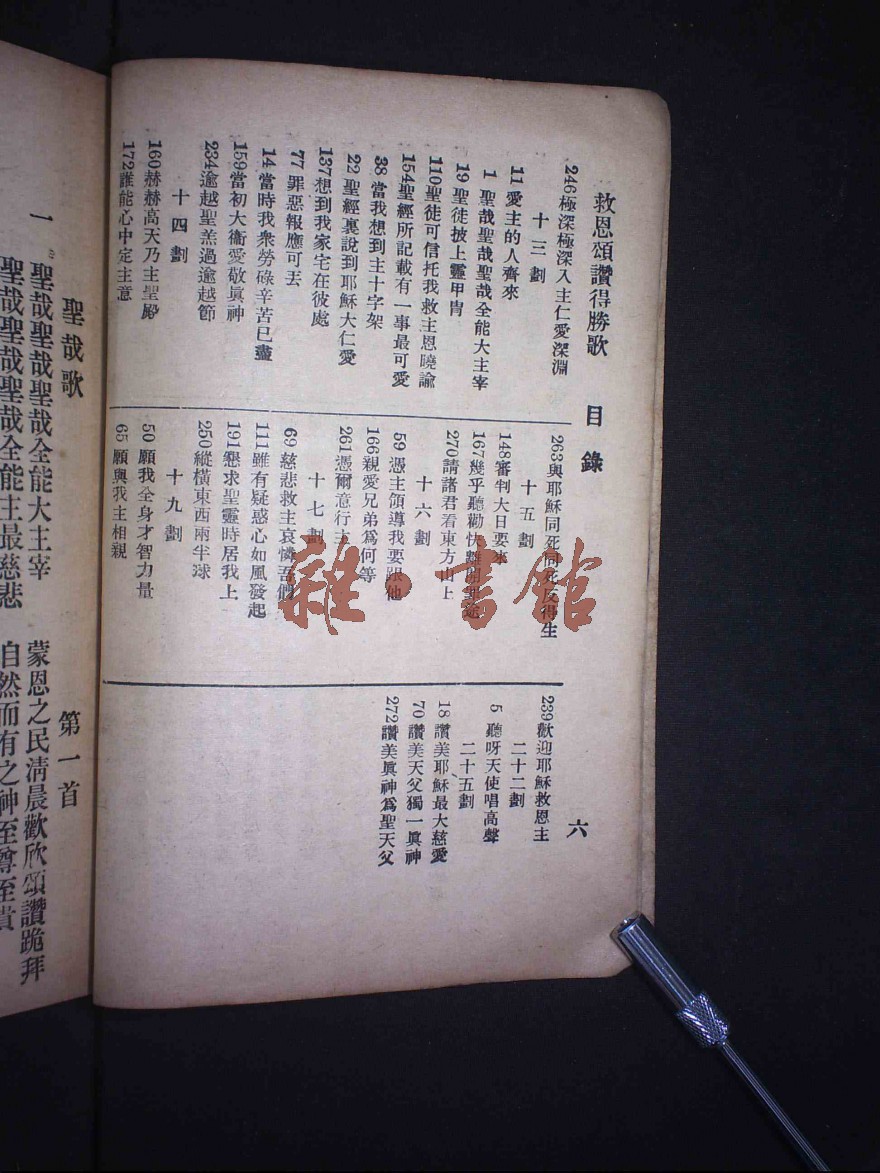 救恩頌讚得勝歌 目錄 六
246極深極深入主仁愛深淵
十三劃
11愛主的人齊來
1聖哉聖哉聖哉全能大主宰
19聖徒披上靈甲冑
110聖徒可信托我救主恩曉諭
154聖經所記載有一事最可愛
38當我想到主十字架
22聖經裏說到耶穌大仁愛
137想到我家宅在彼處
77罪惡報應可丟
14當時我衆勞碌辛苦已盡
159當初大衞愛敬眞神
234逾越聖羔過逾越節
十四劃
160赫赫高天乃主聖殿
172誰能心中定主意
263與耶穌同死同
得生
十五劃
148審判大日要來
167幾乎聽勸快
270請諸君看東方山上
十六劃
59憑主領導我要跟他
166親愛兄弟爲何等
261憑爾意行主
十七劃
69慈悲救主哀憐吾們
111雖有疑惑心如風發起
191懇求聖靈時居我上
250縱橫東西兩半球
十九劃
50願我全身才智力量
65願與我主相親
239歡迎耶穌救恩主
二十二劃
5聽呀天使唱高聲
二十五劃
18讚美耶穌最大慈愛
70讚美天父獨一眞神
272讚美眞神爲聖天父
聖哉歌 第一首
一 聖哉聖哉聖哉全能大主宰 蒙恩之民淸晨歡欣頌讚跪拜
聖哉聖哉聖哉全能主最慈悲 自然而有之神至尊至貴
雜·書館